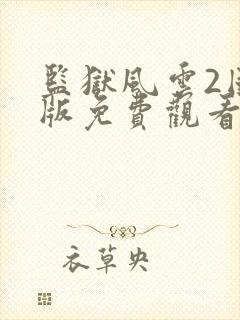 監獄風雲2
版免費觀看
衣草央